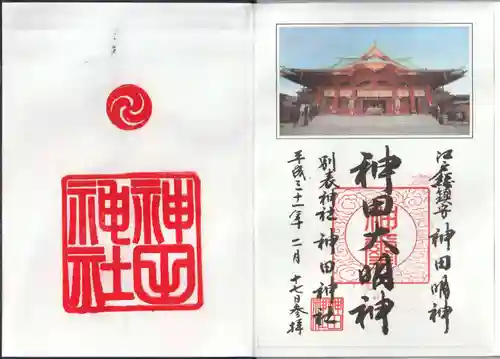 江戸総鎮守 神田明神
神田大明神
別表神社 神田神社
平成三十一年 二月 十七日参拝
神田
神社